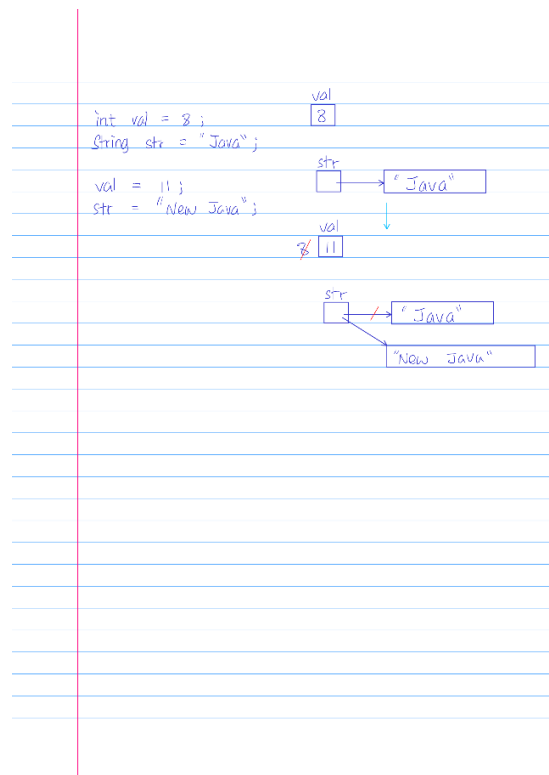 int val = 8 ;
String str = "Java" ;
val = 11 ;
str = "New Java" ;
val
8
str
"Java"
val
8 11
str
"Java"
"New Java"